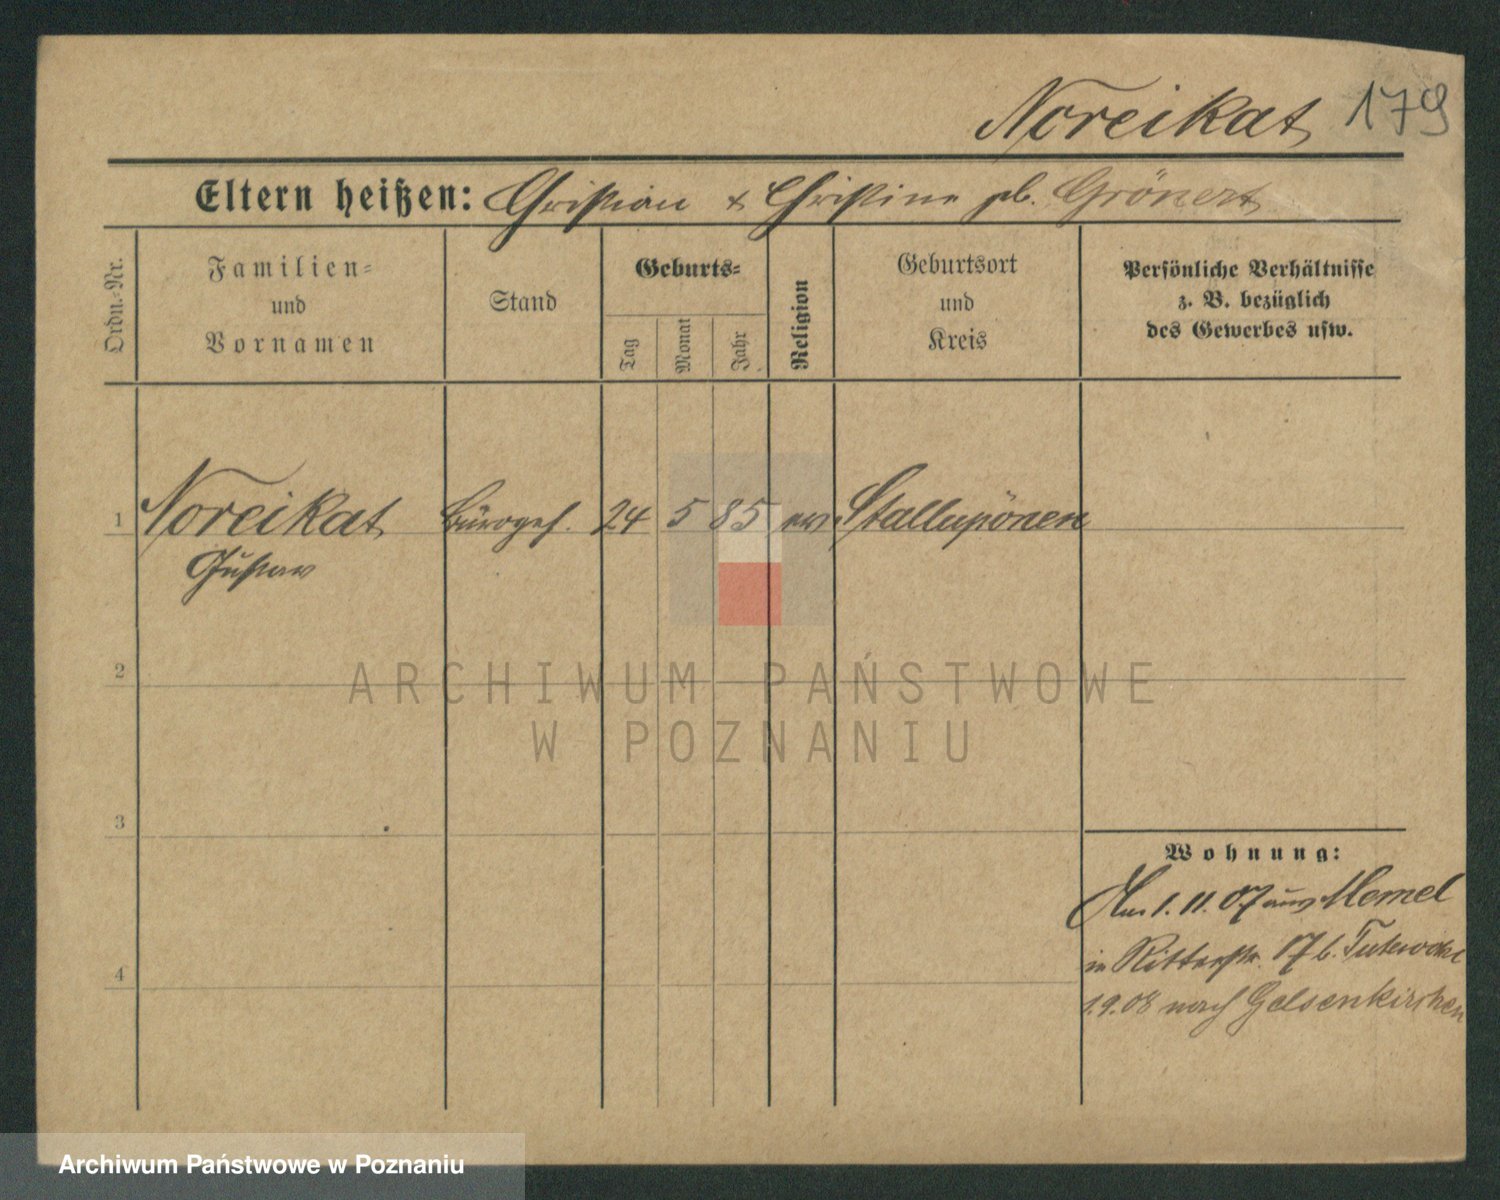 Noreikat 179
Eltern heißen: Christian & Christine geb. Grönert
Ordn.-Nr.
Familien-
und
Vornamen
Stand
Geburts-
Tag
Monat
Jahr
Religion
Geburtsort
und
Kreis
Persönliche Verhältnisse
z. B. bezüglich
des Gewerbes usw.
1 Noreikat Bürogeh. 24 5 85 ev Stallupönen
Gustav
2
ARCHIWUM PAŃSTWOWE
W POZNANIU
3
Wohnung:
1.11.07 aus Memel
in Ritterstr. 17 b.
4
1.9.08 nach Gelsenkirchen
Archiwum Państwowe w Poznaniu